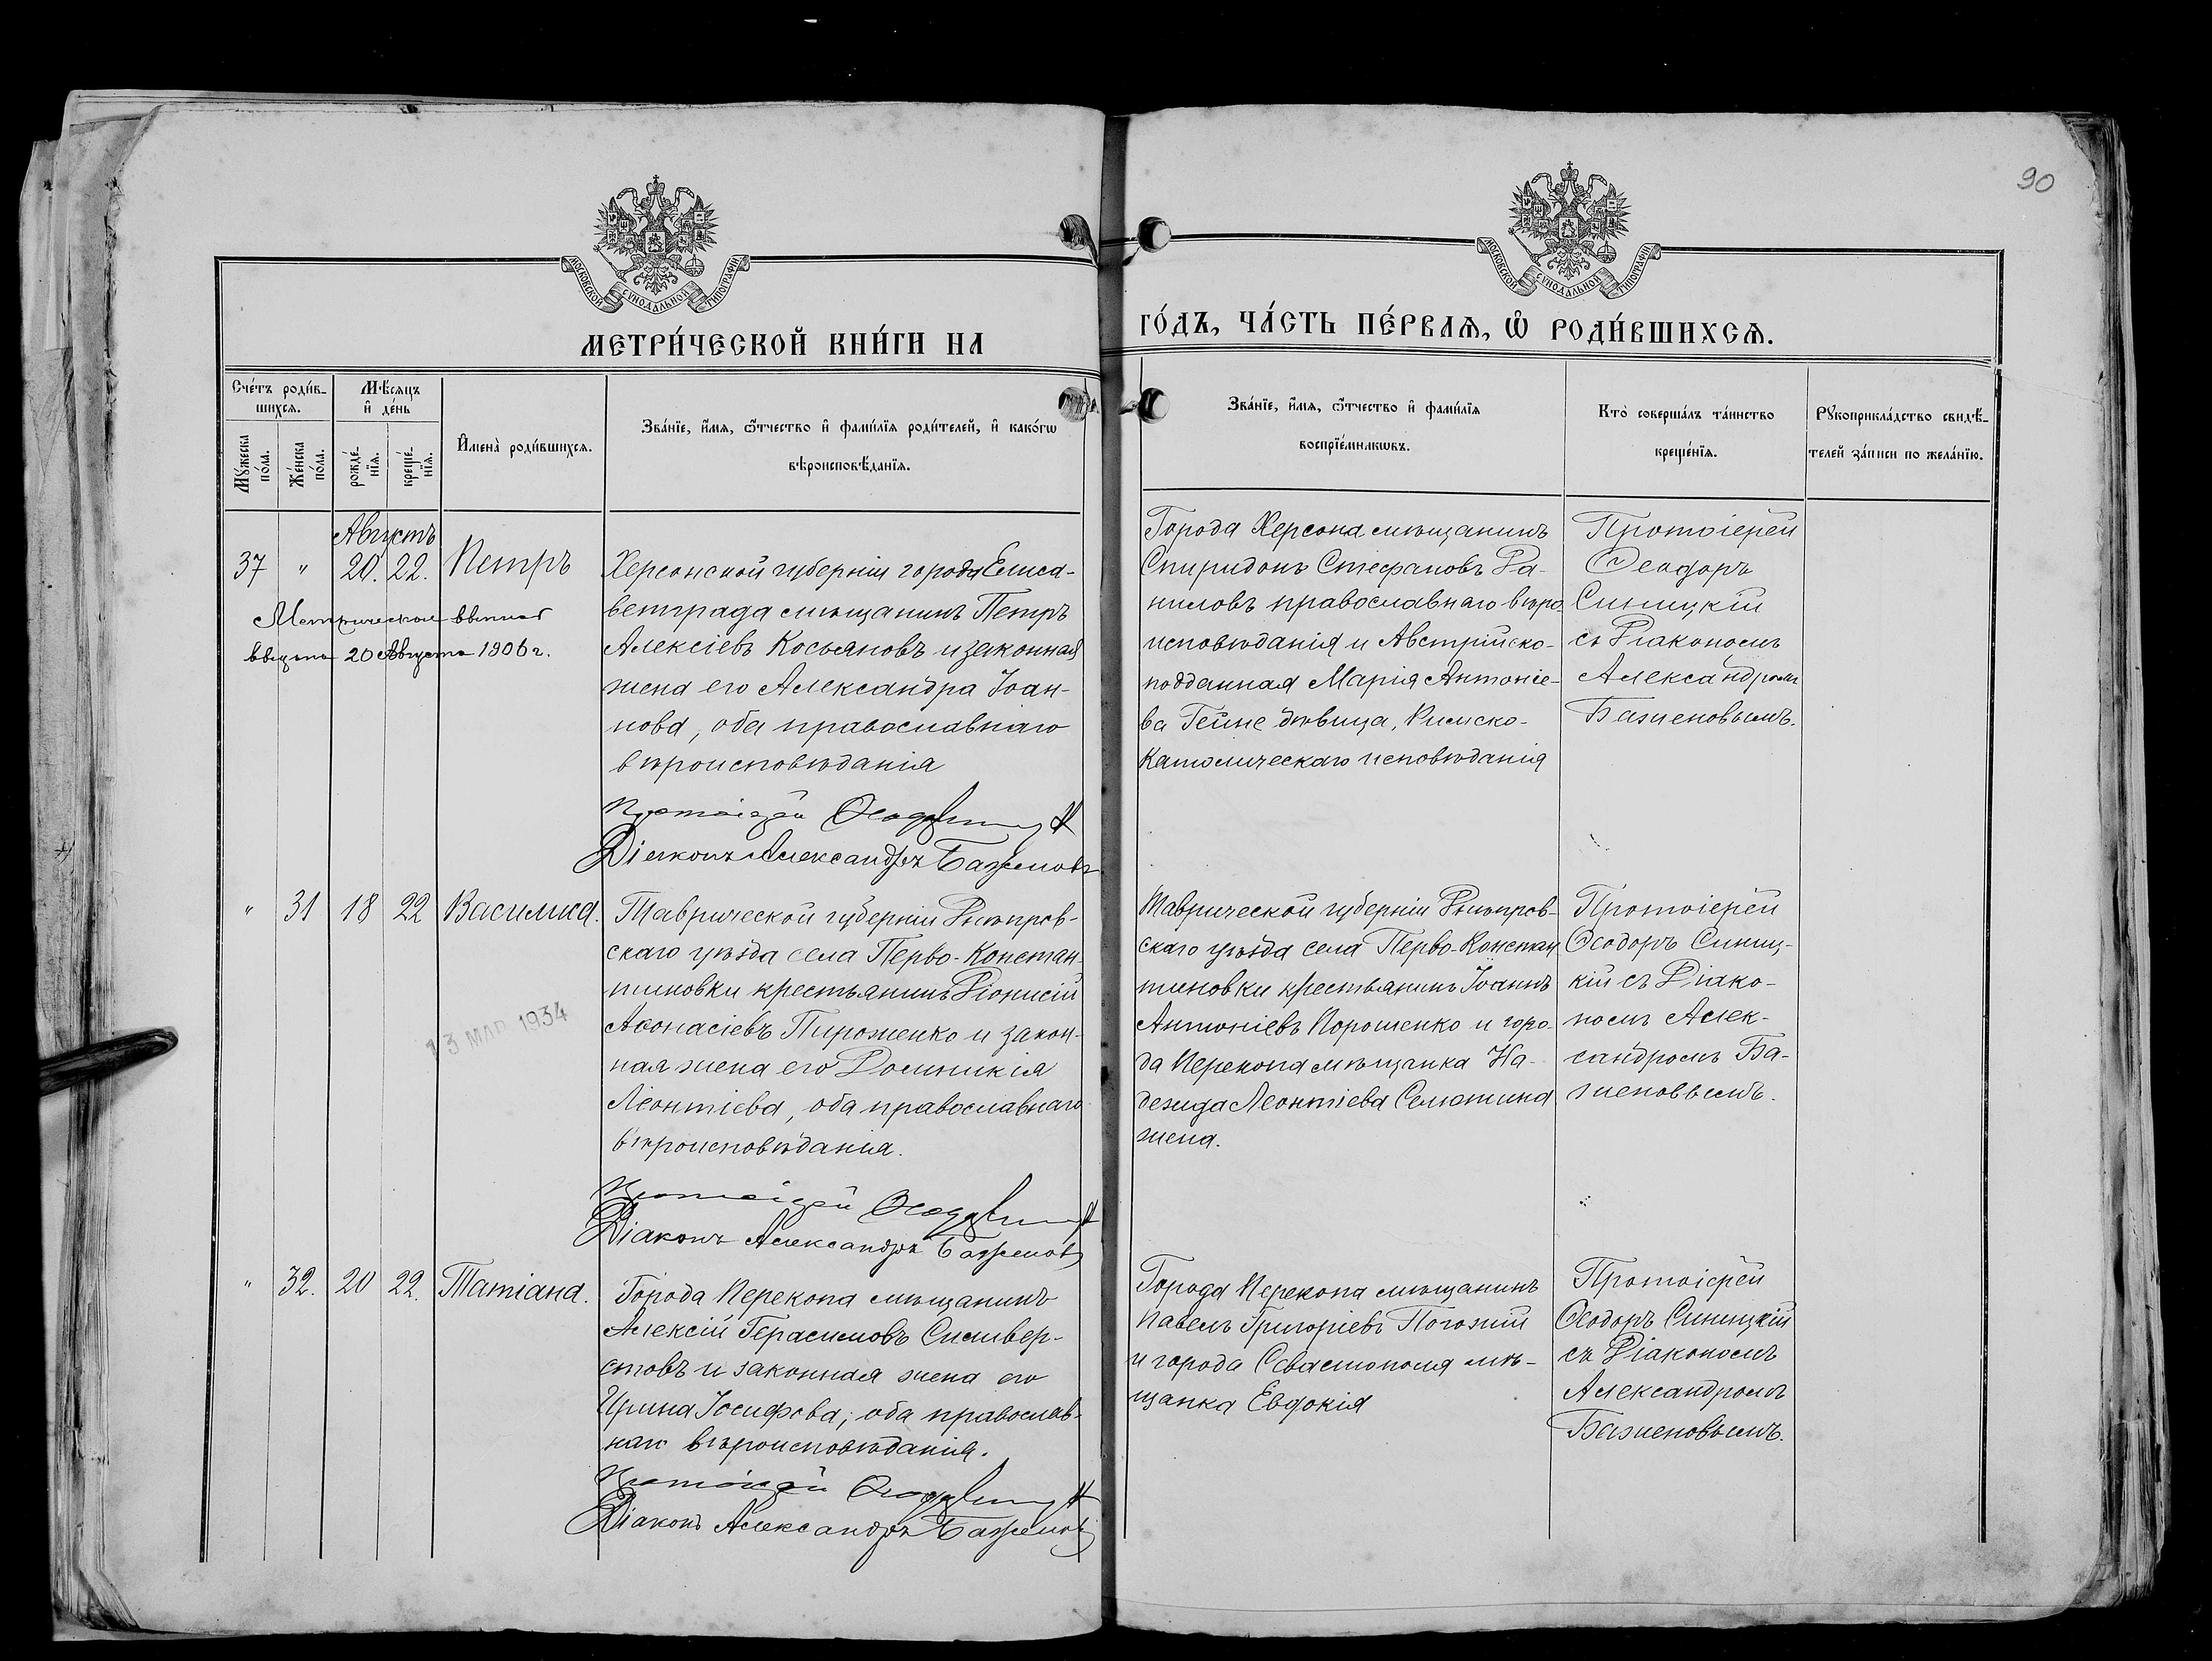 90
МОСКОВСКОЙ СѴНОДАЛЬНОЙ ТИПОГРАФІИ
МОСКОВСКОЙ СѴНОДАЛЬНОЙ ТИПОГРАФІИ
МЕТРИ́ЧЕСКОЙ КНИ́ГИ НА
ГО́ДЪ, ЧА́СТЬ ПЕ́РВАѦ, Ѡ҆ РОДИ́ВШИХСѦ.
Сче́тъ роди́в-
шихсѧ.
Мꙋ́жеска по́ла.
Же́нска по́ла.
Мѣ́сѧцъ
и҆ де́нь
рожде́-нїѧ.
креще́-нїѧ.
И҆мена̀ роди́вшихсѧ.
Зва́нїе, и҆́мѧ, ѻ҆́тчество и҆ фами́лїѧ роди́телей, и҆ како́гѡ
вѣроисповѣ́данїѧ.
Зва́нїе, и҆́мѧ, ѻ҆́тчество и҆ фами́лїѧ
воспрїе́мникѡвъ.
Кто̀ соверша́лъ та́инство
креще́нїѧ.
Рꙋкоприкла́дство свидѣ́-
телей за́писи по жела́нїю.
Августъ
37 " 20. 22. Петръ
Метрическая выпись
выдана 20 Августа 1906 г.
Херсонской губерніи города Елиса-
ветграда мѣщанинъ Петръ
Алексіевъ Косьяновъ и законная
жена его Александра Іоан-
нова, оба православнаго
вѣроисповѣданія
Протоіерей Ѳеодоръ
Діаконъ Александръ Баженовъ
Города Херсона мѣщанинъ
Спиридонъ Стефановъ Да-
ниловъ православнаго вѣро
исповѣданія и Австрійско-
подданная Марія Антоніе-
ва Гейне дѣвица, Римско-
Католическаго исповѣданія
Протоіерей
Ѳеодоръ
Синицкій
съ Діакономъ
Александромъ
Баженовымъ.
" 31 18 22 Василиса.
Таврической губерніи Днѣпров-
скаго уѣзда села Перво-Констан-
тиновки крестьянинъ Діонисій
Аѳонасіевъ Пироженко и закон-
ная жена его Домникія
Леонтіева, оба православнаго
вѣроисповѣданія.
Протоіерей Ѳеодоръ
Діаконъ Александръ Баженовъ
13 МАР 1934
Таврической губерніи Днѣпров-
скаго уѣзда села Перво-Констан
тиновки крестьянинъ Іоаннъ
Антоніевъ Порошенко и горо-
да Перекопа мѣщанка На-
дежда Леонтіева Селютина
жена.
Протоіерей
Ѳеодоръ Синиц-
кій съ Діако-
номъ Алек-
сандромъ Ба-
женовымъ.
" 32. 20 22. Татіана.
Города Перекопа мѣщанинъ
Алексій Герасимовъ Силивер-
стовъ и законная жена его
Ирина Іосифова; оба православ-
наго вѣроисповѣданія.
Протоіерей Ѳеодоръ
Діаконъ Александръ Баженовъ
Города Перекопа мѣщанинъ
Павелъ Григоріевъ Погожій
и города Севастополя мѣ-
щанка Евдокія
Протоіерей
Ѳеодоръ Синицкій
съ Діакономъ
Александромъ
Баженовымъ.